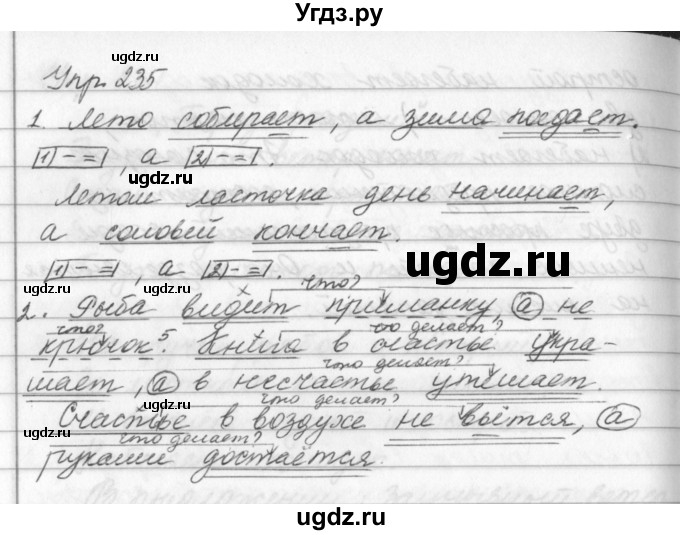 Угдз.ру
Упр. 235
ugdz.ru
ugdz.ru
1. Лето собирает, а зима поедает.
|1) – =|, а |2) – =|.
ugdz.ru
ugdz.ru
Летом ласточка день начинает,
а соловей кончает.
|1) – =|, а |2) – =|.
ugdz.ru
что?
2. Рыба видит приманку, а не
что? что делает?
крючок⁵. Книга в счастье укра-
что делает?
шает, а в несчастье утешает.
ugdz.ru
что делает?
Счастье в воздухе не вьётся, а
что делает?
руками достаётся.
ugdz.ru
ugdz.ru
ugdz.ru